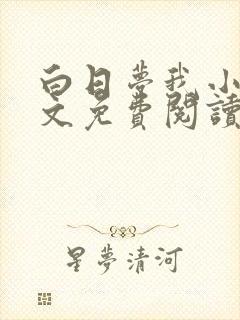 白日夢我小
文免費閱讀
星夢清河